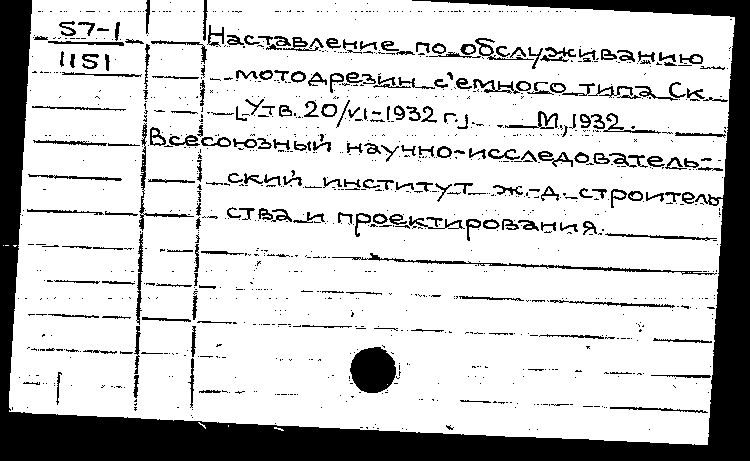 57-1
1151
Наставление по обслуживанию
мотодрезин с'емного типа Ск.
[Утв. 20/VI-1932 г.] М., 1932.
Всесоюзный научно-исследователь-
ский институт ж.-д. строитель
ства и проектирования.